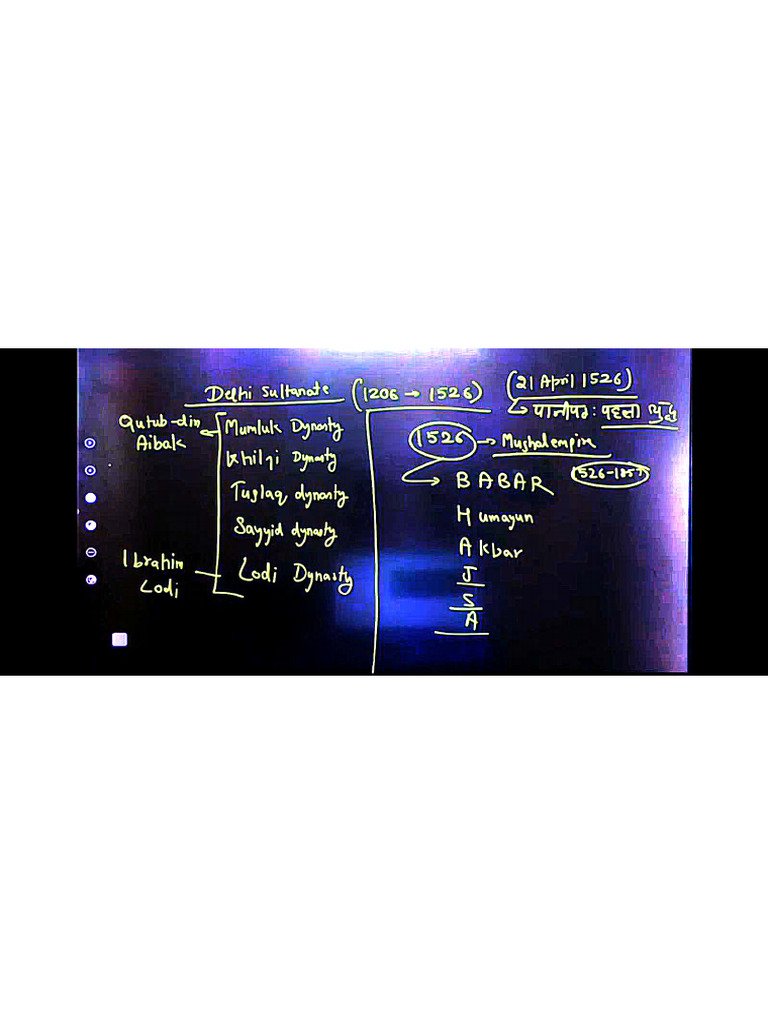 Delhi Sultanate (1206 → 1526)
Qutub-din Aibak
Mumluk Dynasty
Khilqi Dynasty
Tuglaq dynasty
Sayyid dynasty
Ibrahim Lodi
Lodi Dynasty
(21 April 1526)
→ पानीपत : पहला युद्ध
1526 → Mughal empire
1526-1857
→ BABAR
Humayun
Akbar
J
S
A